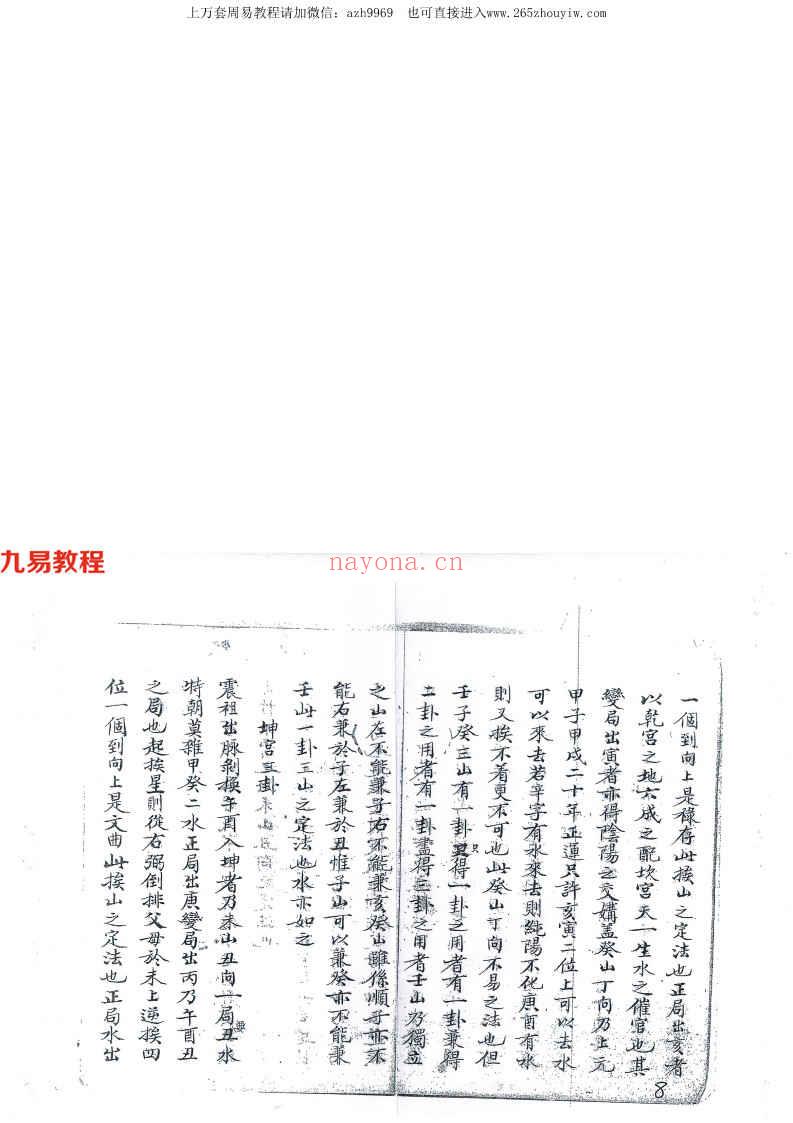 上万套周易教程请加微信：azh9969 也可直接进入www.265zhouyiw.com
九易教程
nayona.cn
一個到向上是祿存此挨山之定法也正局出亥者
以乾宮之地六成之配坎宮天一生水之催官也其
變局出寅者亦得陰陽之交媾蓋癸山丁向乃上元
甲子甲戌二十年正運只許亥寅二位上可以去水
可以來去若辛字有水來去則純陽不化庚酉有水
則又挨不着更不可也此癸山丁向不易之法也但
壬子癸三山有一卦只得一卦之用者有一卦兼得
二卦之用者有一卦盡得三卦之用者壬山乃獨立
之山左不能兼子右不能兼亥癸山雖係順子亦不
能右兼於子左兼於丑惟子山可以兼癸亦不能兼
壬此一卦三山之定法也水亦如之
坤宮三卦
震祖出脈剝換午酉入坤者乃未山丑向一局丑水
特朝莫雜甲癸二水正局出庚變局出丙乃午酉丑
之局也起挨星則從右弼倒排父母於未上逆挨四
位一個到向上是文曲此挨山之定法也正局水出
8